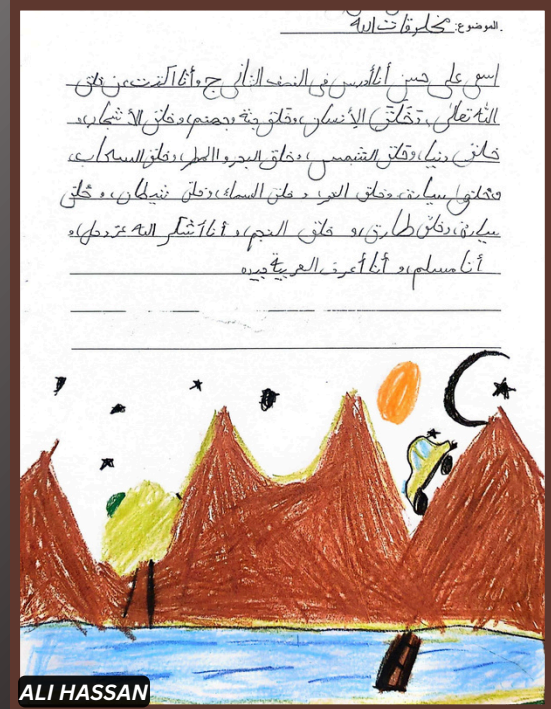 الموضوع: مخلوقات الله
إسمي علي حسن أنا أدرس في الصف الثاني ج وأنا أكتب عن خلق
الله تعالى، وَخَلَقَ الإنسان، وخلق جنة وجهنم، وخلق الأشجار، و
خلق دنيا، وخلق الشمس، وخلق البحر والمطر، وخلق السحاب،
سيارة، وخلق، و خلق السماء، وخلق شيطان، و خلق
سيارة، وخلق طارق، و خلق النجم، و أنا أشكر الله عز وجل، و
أنا مسلم، و أنا أعرف العربية جيده
ALI HASSAN